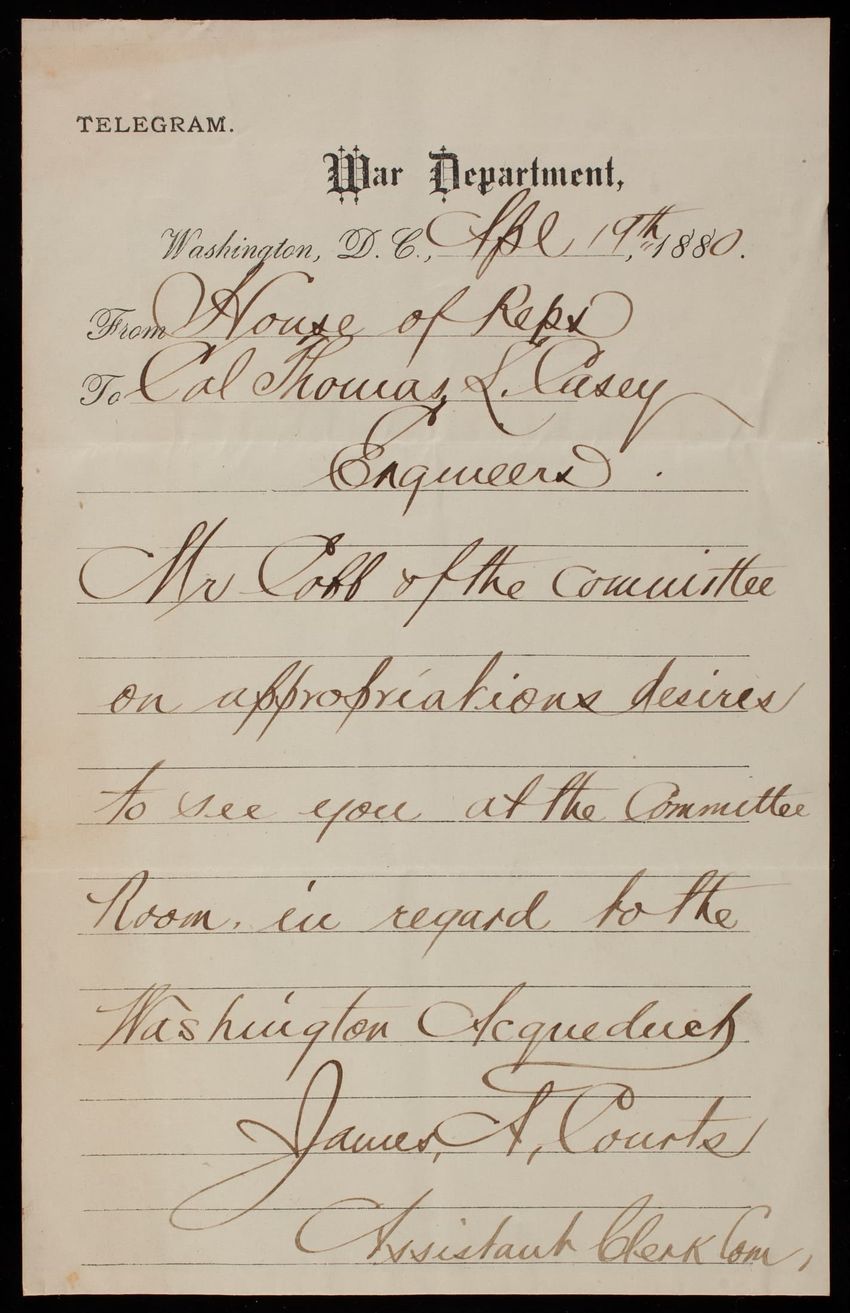 TELEGRAM.
War Department,
Washington, D. C., Apl 19th, 1880.
From House of Reps
To Col Thomas, L. Casey
Engineers.
Mr Cobb of the committee
on appropriations desires
to see you at the Committee
Room. in regard to the
Washington Acqueduct
James, A, Courts
Assistant Clerk Com,